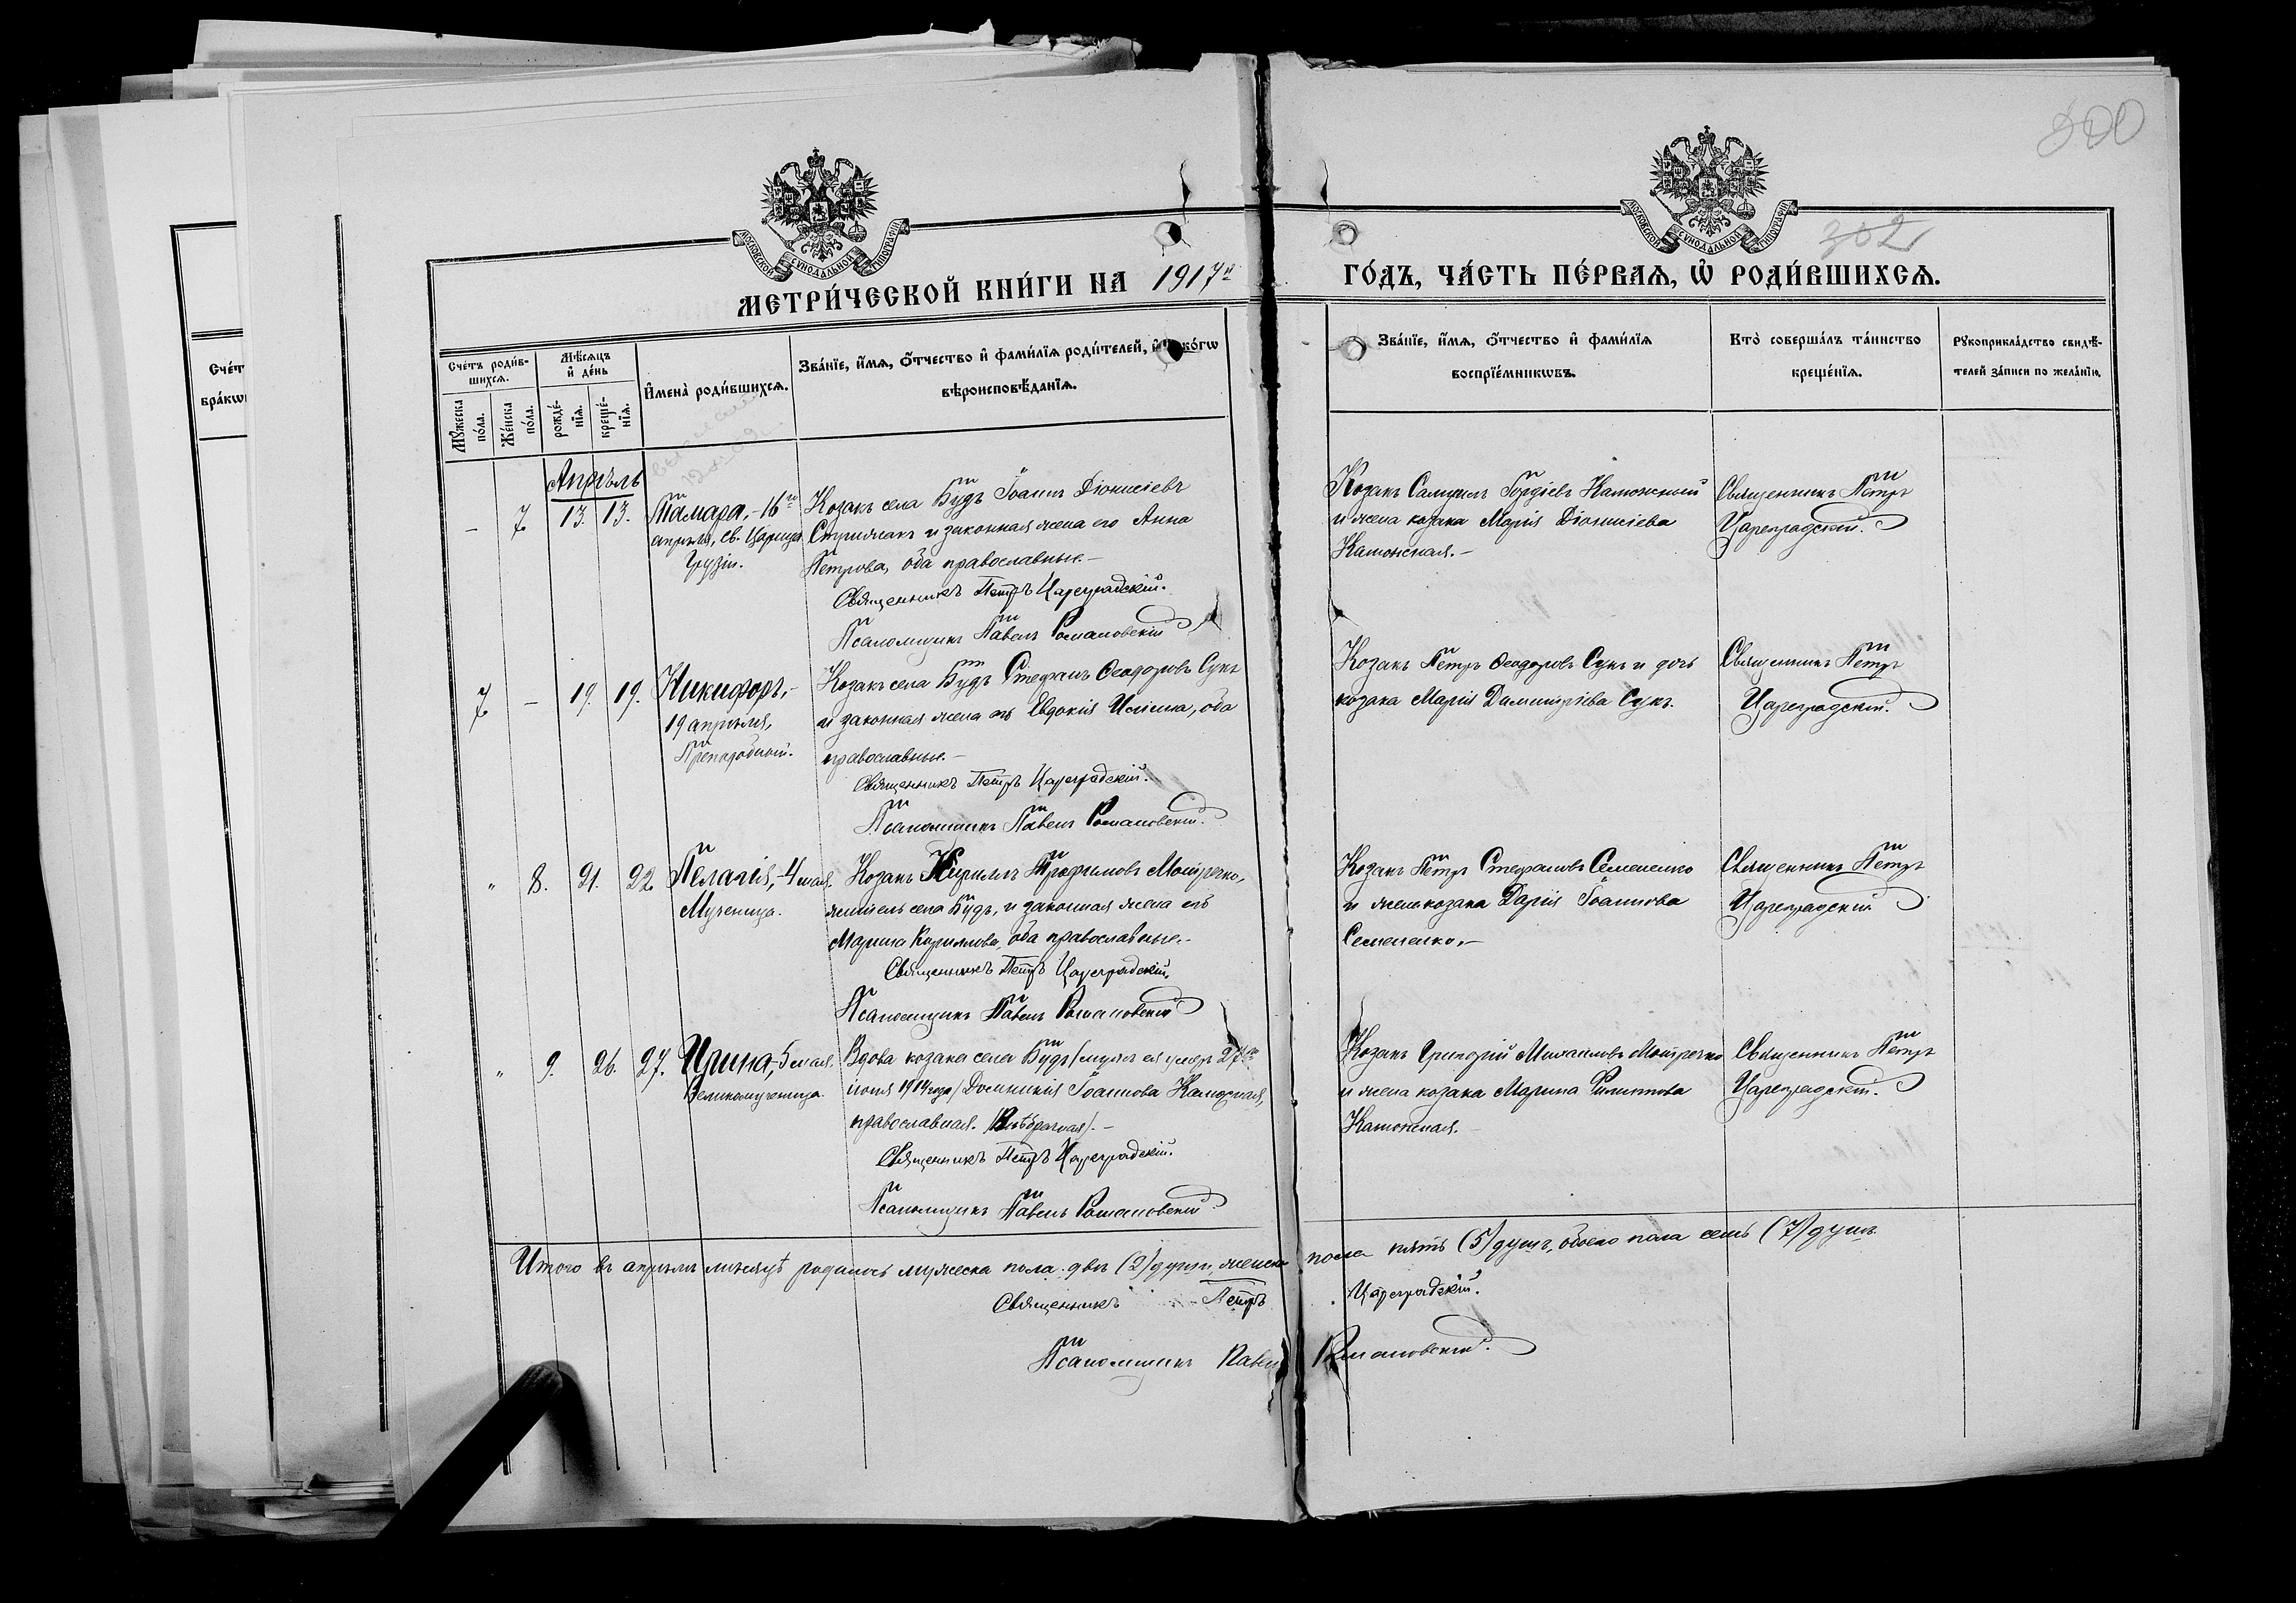 500
302
МЕТРИ́ЧЕСКОЙ КНИ́ГИ НА 1917й ГО́ДЪ, ЧА́СТЬ ПЕ́РВАѦ, Ѽ РОДИ́ВШИХСѦ.
МОСКОВСКОЙ СУНОДАЛЬНОЙ ТИПОГРАФІИ
МОСКОВСКОЙ СУНОДАЛЬНОЙ ТИПОГРАФІИ
Счéтъ роди́в-
шихсѧ.
Мꙋ́жеска по́ла.
Же́нска по́ла.
Мѣ́сѧцъ и҆ де́нь
рожде́-нїѧ.
креще́-нїѧ.
И҆мена̀ роди́вшихсѧ.
Зва́нїе, и҆́мѧ, ѻ҆́тчество и҆ фами́лїѧ роди́телей, и҆ како́гѡ
вѣроисповѣ́данїѧ.
Зва́нїе, и҆́мѧ, ѻ҆́тчество и҆ фами́лїѧ
воспрїе́мникѡвъ.
Кто̀ соверша́лъ та́инство
креще́нїѧ.
Рꙋкоприкла́дство свидѣ́-
телей за́писи по жела́нїю.
Счéт
бра́кѡ
Апрѣль
– 7 13. 13. Тамара, – 16го
апрѣля, св. Царица
Грузіи.
Козакъ села Будъ Іоаннъ Діонисіевъ
и законная жена его Анна
Петрова, оба православные. –
Священникъ Петръ Цареградскій.
Псаломщикъ Павелъ Романовскій
Козакъ Гордіевъ Катонскый
и жена козака Марія Діонисіева
Катонская. –
Священникъ Петръ
Цареградскій.
7 – 19. 19. Никифоръ, –
19 апрѣля,
Преподобный.
Козакъ села Будъ Стефанъ Ѳеодоровъ Сукъ
и законная жена его Евдокія оба
православные. –
Священникъ Петръ Цареградскій.
Псаломщикъ Павелъ Романовскій.
Козакъ Петръ Ѳеодоровъ Сукъ и дочь
козака Марія Димитріева Сукъ.
Священникъ Петръ
Цареградскій.
" 8. 21. 22. Пелагія, – 4 мая.
Мученица.
Козакъ Кириллъ Трофимовъ Мотречко,
житель села Будъ, и законная жена его
Марина Кириллова, оба православные. –
Священникъ Петръ Цареградскій.
Псаломщикъ Павелъ Романовскій
Козакъ Петръ Стефановъ Семененко
и жена козака Дарія Іоаннова
Семененко. –
Священникъ Петръ
Цареградскій
" 9. 26. 27. Ирина, – 5 мая.
Великомученица.
Вдова козака села Будъ (мужъ ея умеръ 27го
1914 года) Домникія Іоаннова
православная. (Внѣбрачная). –
Священникъ Петръ Цареградскій.
Псаломщикъ Павелъ Романовскій
Козакъ Григорій Михаиловъ Мотречко
и жена козака Марина Филиппова
Катонская. –
Священникъ Петръ
Цареградскій.
Итого въ апрѣлѣ мѣсяцѣ родилось мужеска пола двѣ (2) души, женска пола пять (5) душъ, обоего пола семь (7) душъ.
Священникъ Петръ Цареградскій.
Псаломщикъ Павелъ Романовскій.